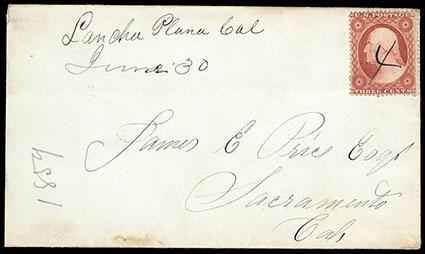 Lancha Plana Cal
June 30
U.S. POSTAGE
THREE CENTS
James E Price Esqr
Sacramento
Cal